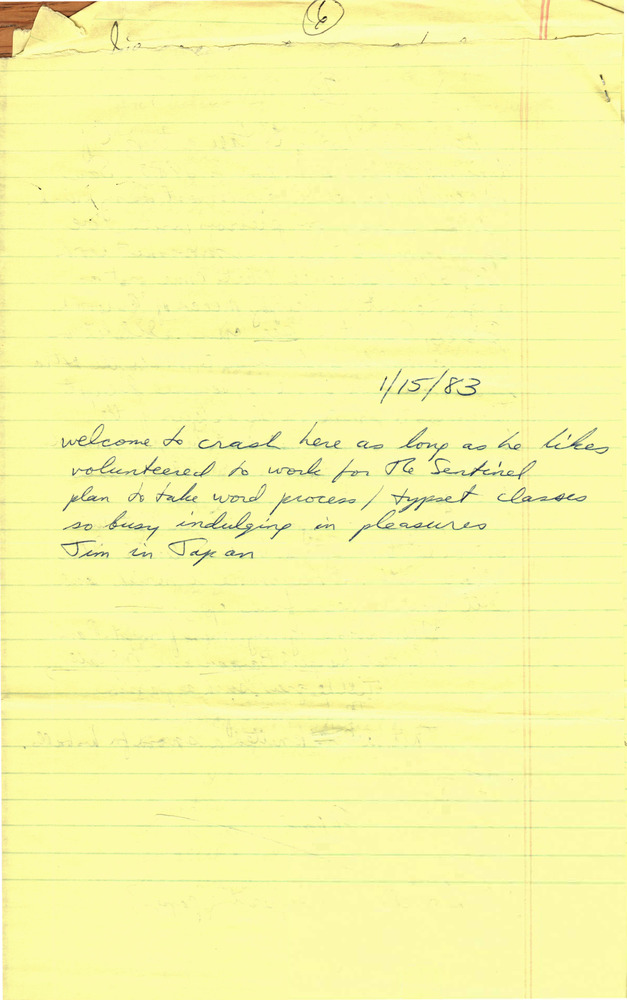 6
1/15/83
welcome to crash here as long as he likes
volunteered to work for The Sentinel
plan to take word process / typset classes
so busy indulging in pleasures
Jim in Japan